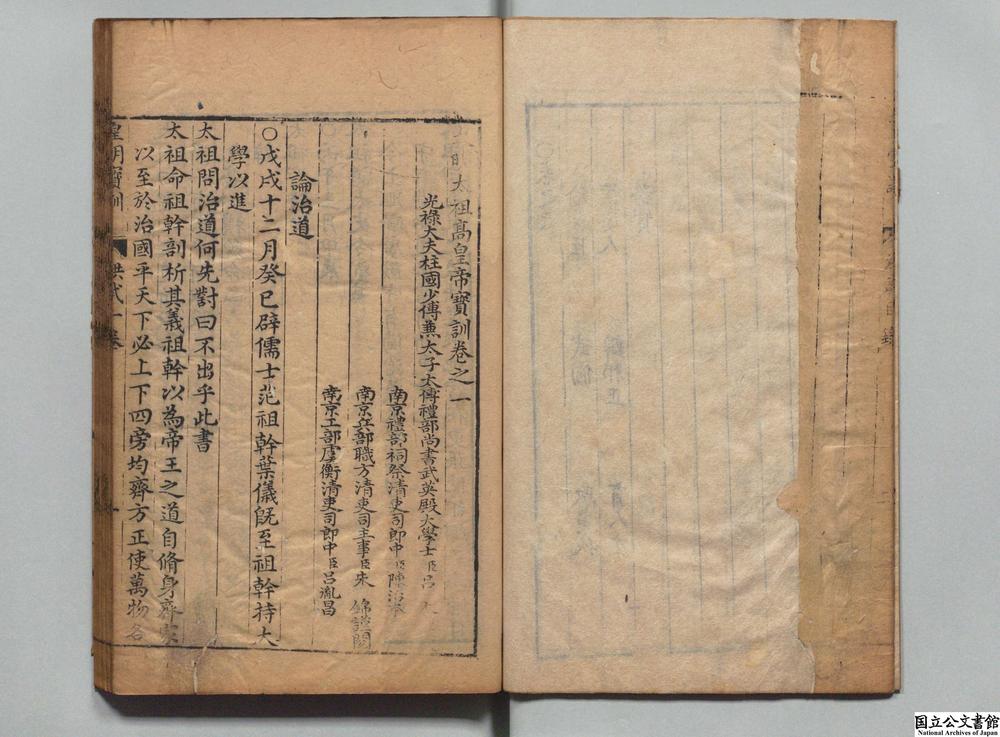 明太祖高皇帝寶訓卷之一
光祿大夫柱國少傅兼太子太傅禮部尚書武英殿大學士臣呂
南京禮部祠祭清吏司郎中臣陳治本
南京兵部職方清吏司主事臣朱 錦謹閱
南京工部虞衡清吏司郎中臣呂胤昌
論治道
○戊戌十二月癸巳辟儒士范祖幹葉儀既至祖幹持大
學以進
太祖問治道何先對曰不出乎此書
太祖命祖幹剖析其義祖幹以為帝王之道自脩身齊家
以至於治國平天下必上下四旁均齊方正使萬物各
皇明寶訓 洪武一卷 一
国立公文書館
National Archives of Japan